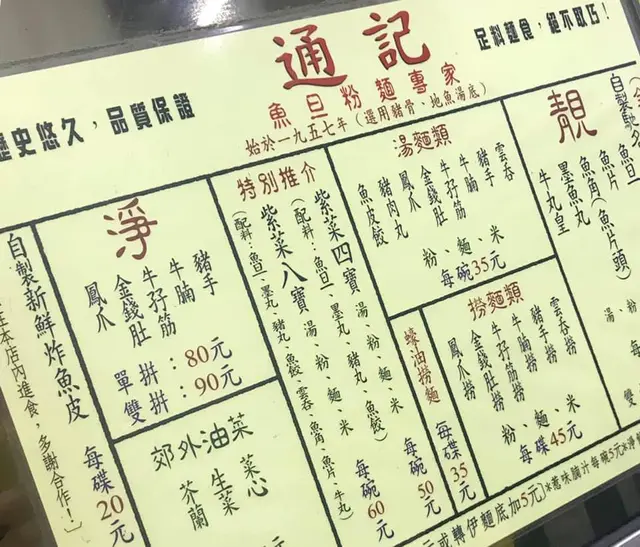 足料麵食，絕不取巧！
通記
魚旦粉麵專家
始於一九五七年（選用豬骨、地魚湯底）
歷史悠久，品質保證
靚
魚片
魚角（魚片頭）
墨魚丸
牛丸皇
湯麵類
雲吞
豬手
牛腩
牛孖筋
金錢肚
鳳爪
豬肉丸
魚皮餃
粉、麵、米
每碗35元
撈麵類
雲吞撈
豬手撈
牛腩撈
牛孖筋撈
金錢肚撈
鳳爪撈
粉、麵、米
每碟45元
蠔油撈麵
每碟35元
特別推介
紫菜四寶 湯、粉、麵、米
（配料：魚旦、墨丸、豬丸、魚餃）
每碗50元
紫菜八寶 湯、粉、麵、米
（配料：魚旦、墨丸、豬丸、魚餃、雲吞、魚角、魚片、牛丸）
每碗60元
淨
豬手
牛腩
牛孖筋
金錢肚
鳳爪
單拼：80元
雙拼：90元
郊外油菜
菜心
生菜
芥蘭
自製新鮮炸魚皮
在本店內進食，多謝合作！）
每碟20元
元或轉伊麵底加5元）*惹味腩汁每碗5元*淨